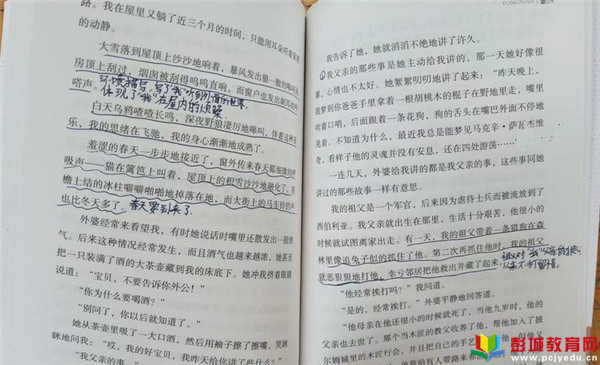 路。我在屋里又躺了近三个月的时间，只能用耳朵听着窗外
的动静。
大雪落到屋顶上沙沙地响着，暴风发出狼一般的嗥叫从
房顶上刮过，烟囱被刮得呜呜直响，而窗户也发出
嗒声。
环境描写，写了“我”听到外面的世界，
体现了“我”在屋内的烦躁
白天乌鸦喳喳长鸣，深夜野狼凄厉地嗥叫，伴着这种音
乐，我的思绪在飞驰，我的身心渐渐地成熟了。
羞涩的春天一步步地接近了，窗外传来春天那细微的呼
吸声——猫在篱笆上叫着，屋顶上的积雪沙沙地融化了，房
檐上结的冰柱噼噼啪啪地掉落在地，而大街上的马车铃铛声
也比冬天多了。
春天要到来了
外婆经常来看望我，有时她说话时嘴里还散发出一股酒
气。后来这种情况经常发生，而且酒气也越来越浓，她甚至
把一只装满了酒的大茶壶藏到我的床底下。她冲我挤着眼睛
说道：“宝贝，不要告诉你外公！”
“你为什么要喝酒？”
“别问了，你以后就知道了。”
她从茶壶里吸了一大口酒，然后用袖子擦了擦嘴，笑眯
眯地问我：“哎，我的好宝贝，我昨天给你讲了些什么？”
“我父亲的事……”
TONGNIAN
我告诉了她，她就滔滔不绝地讲了许久。
我父亲的那些事是她主动给我讲的，那一天她好像很
累，心情也不太好。她絮絮叨叨地讲了起来：“昨天晚上，
我梦到你爸爸手里拿着一根胡桃木的棍子在野地里走，嘴里
吹着口哨，后面跟着一条花狗，狗的舌头在嘴巴外面不停地
晃着。不知道为什么，最近我总是能梦见马克辛·萨瓦杰维
奇，看样子他的灵魂并没有安息，还在四处游荡……”
一连几天，外婆给我讲的都是我父亲的事，这些事同她
讲过的那些故事一样有意思。
我的祖父是一个军官，后来因为虐待士兵而被流放到了
西伯利亚。我父亲就出生在那里，生活十分艰苦，他很小的
时候就试图离家出走。有一天，我的祖父带着一条猎狗在森
林里像追兔子似的抓住了他。第二次再抓住他时，我的祖父
就恶狠狠地打他，幸亏邻居把他救出并藏了起来。
“他经常挨打吗？”我问道。
“是的，经常挨打。”外婆平静地回答道。
“他母亲在他还很小的时候就死了，当他九岁时，他的
父亲也去世了。那个当木匠的教父收养了他，帮他加入了彼
尔姆城里的木匠行会，并且把自己的手艺
彭城教育网
www.pcjyedu.cn